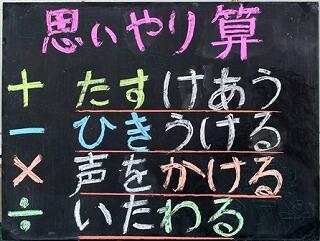 思いやり算
+ たすけあう
− ひきうける
× 声をかける
÷ いたわる